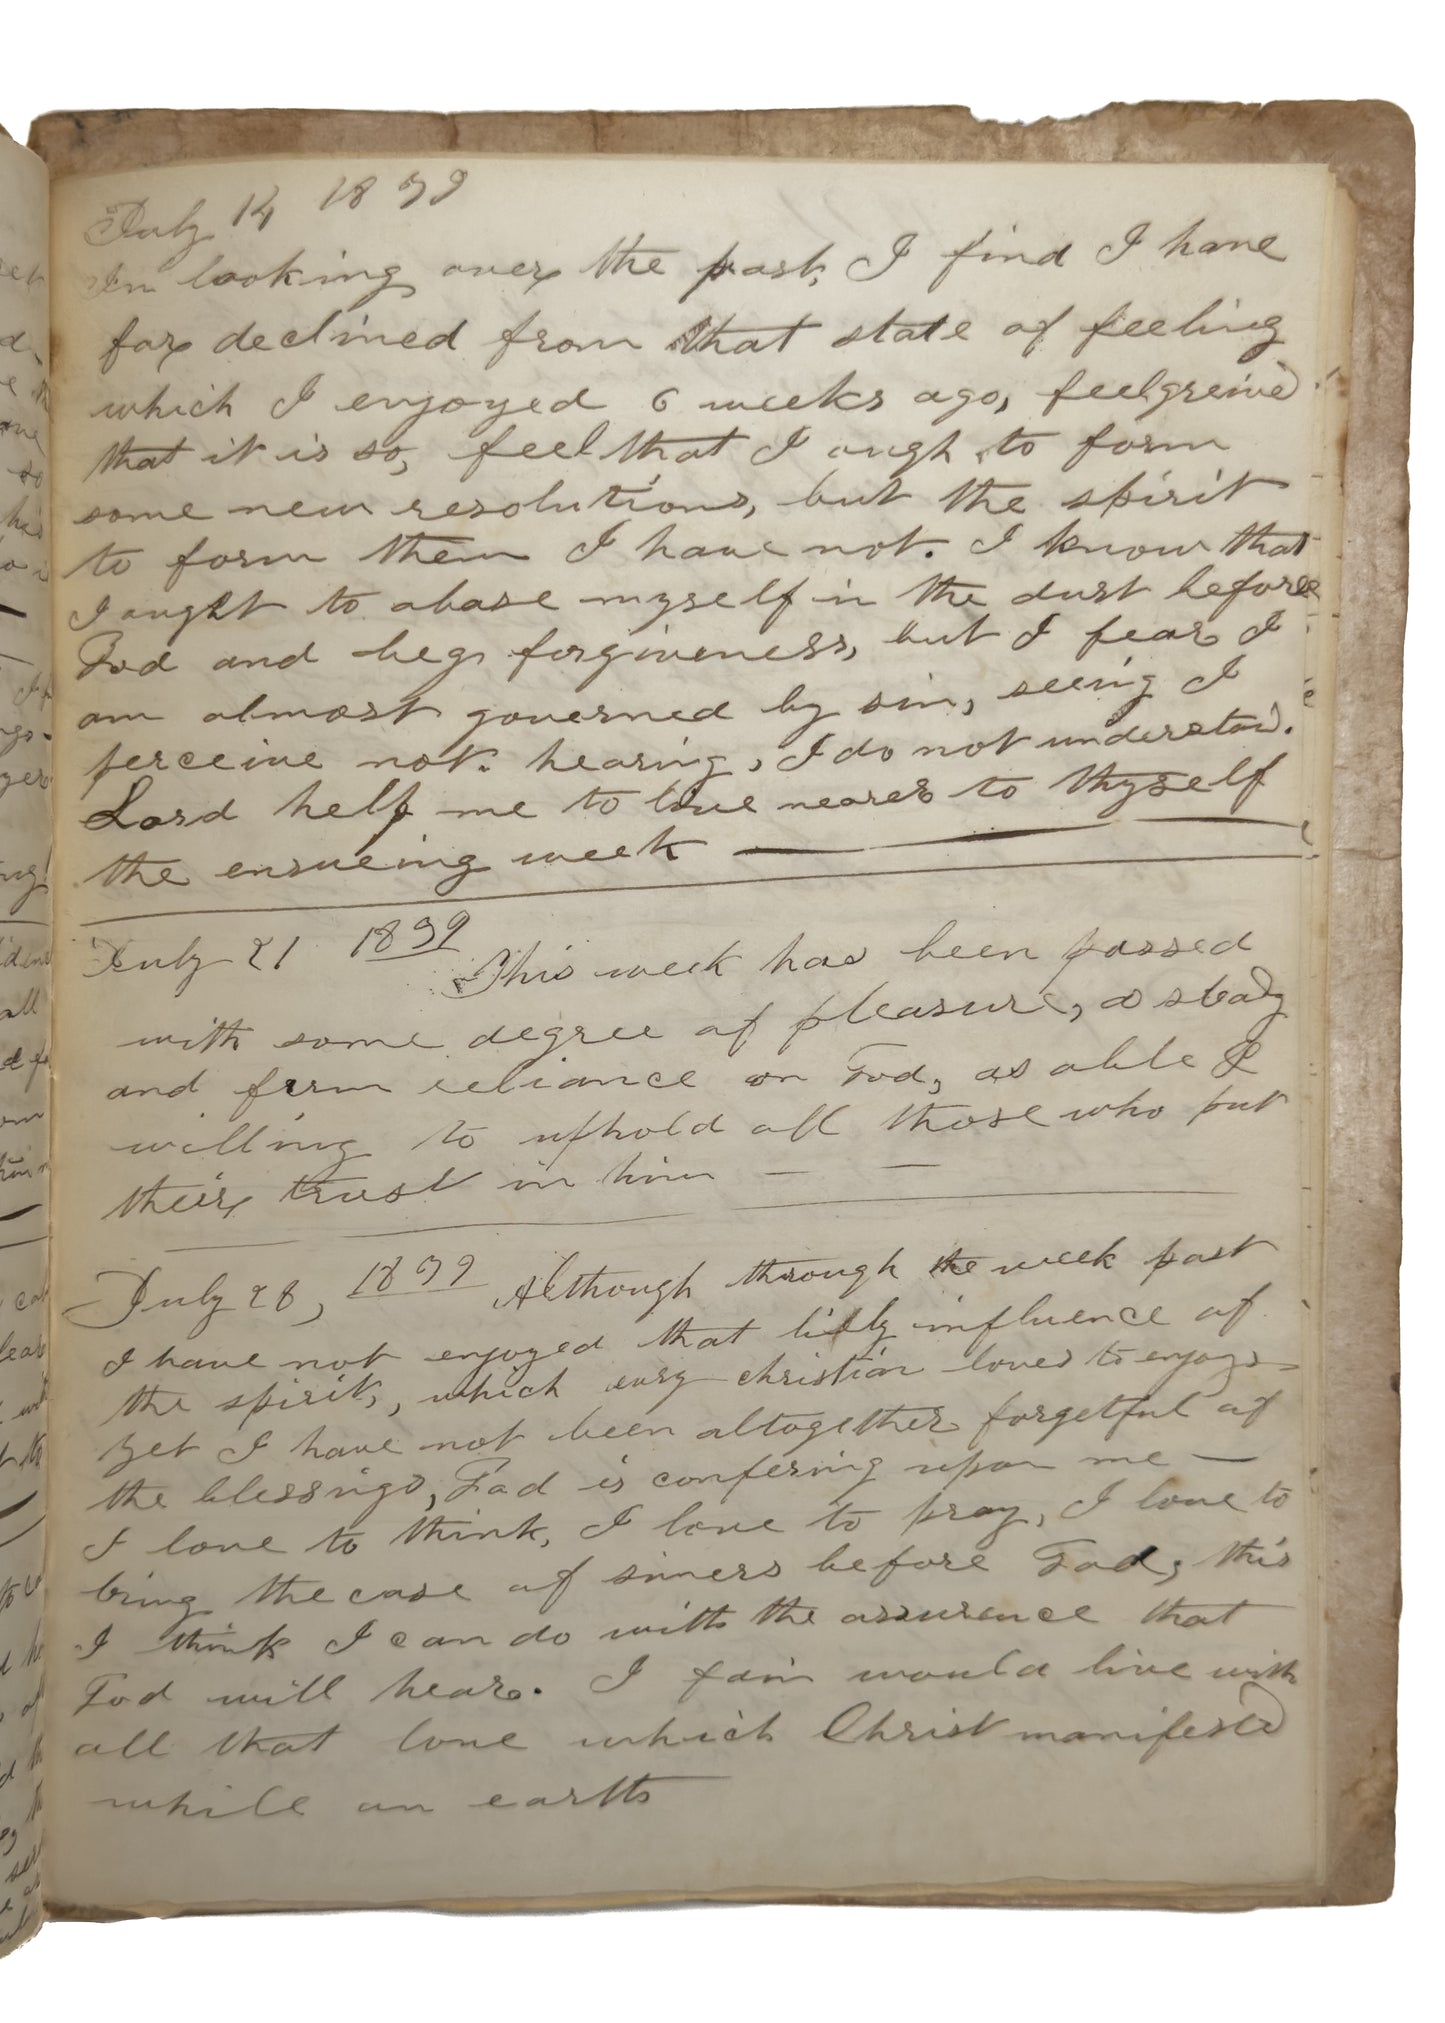 July 14 1839
In looking over the past, I find I have
far declined from that state of feeling
which I enjoyed 6 weeks ago, feel greived
that it is so, feel that I ough to form
some new resolutions, but the spirit
to form them I have not. I know that
I ought to abase myself in the dust before
God and beg forgiveness, but I fear I
am almost governed by sin, seeing I
perceive not. hearing, I do not understand.
Lord help me to live nearer to thyself
the ensueing week
July 21 1839 This week has been passed
with some degree of pleasure, a steady
and firm reliance on God, as able &
willing to uphold all those who put
their trust in him — —
July 28, 1839 Although through the week past
I have not enjoyed that lively influence of
the spirit, which every christian loves to enjoy
yet I have not been altogether forgetful of
the blessings, God is confering upon me —
I love to think, I love to pray, I love to
bring the case of sinners before God, this
I think I can do with the assurence that
God will hear. I fain would live with
all that love which Christ manifested
while on earth